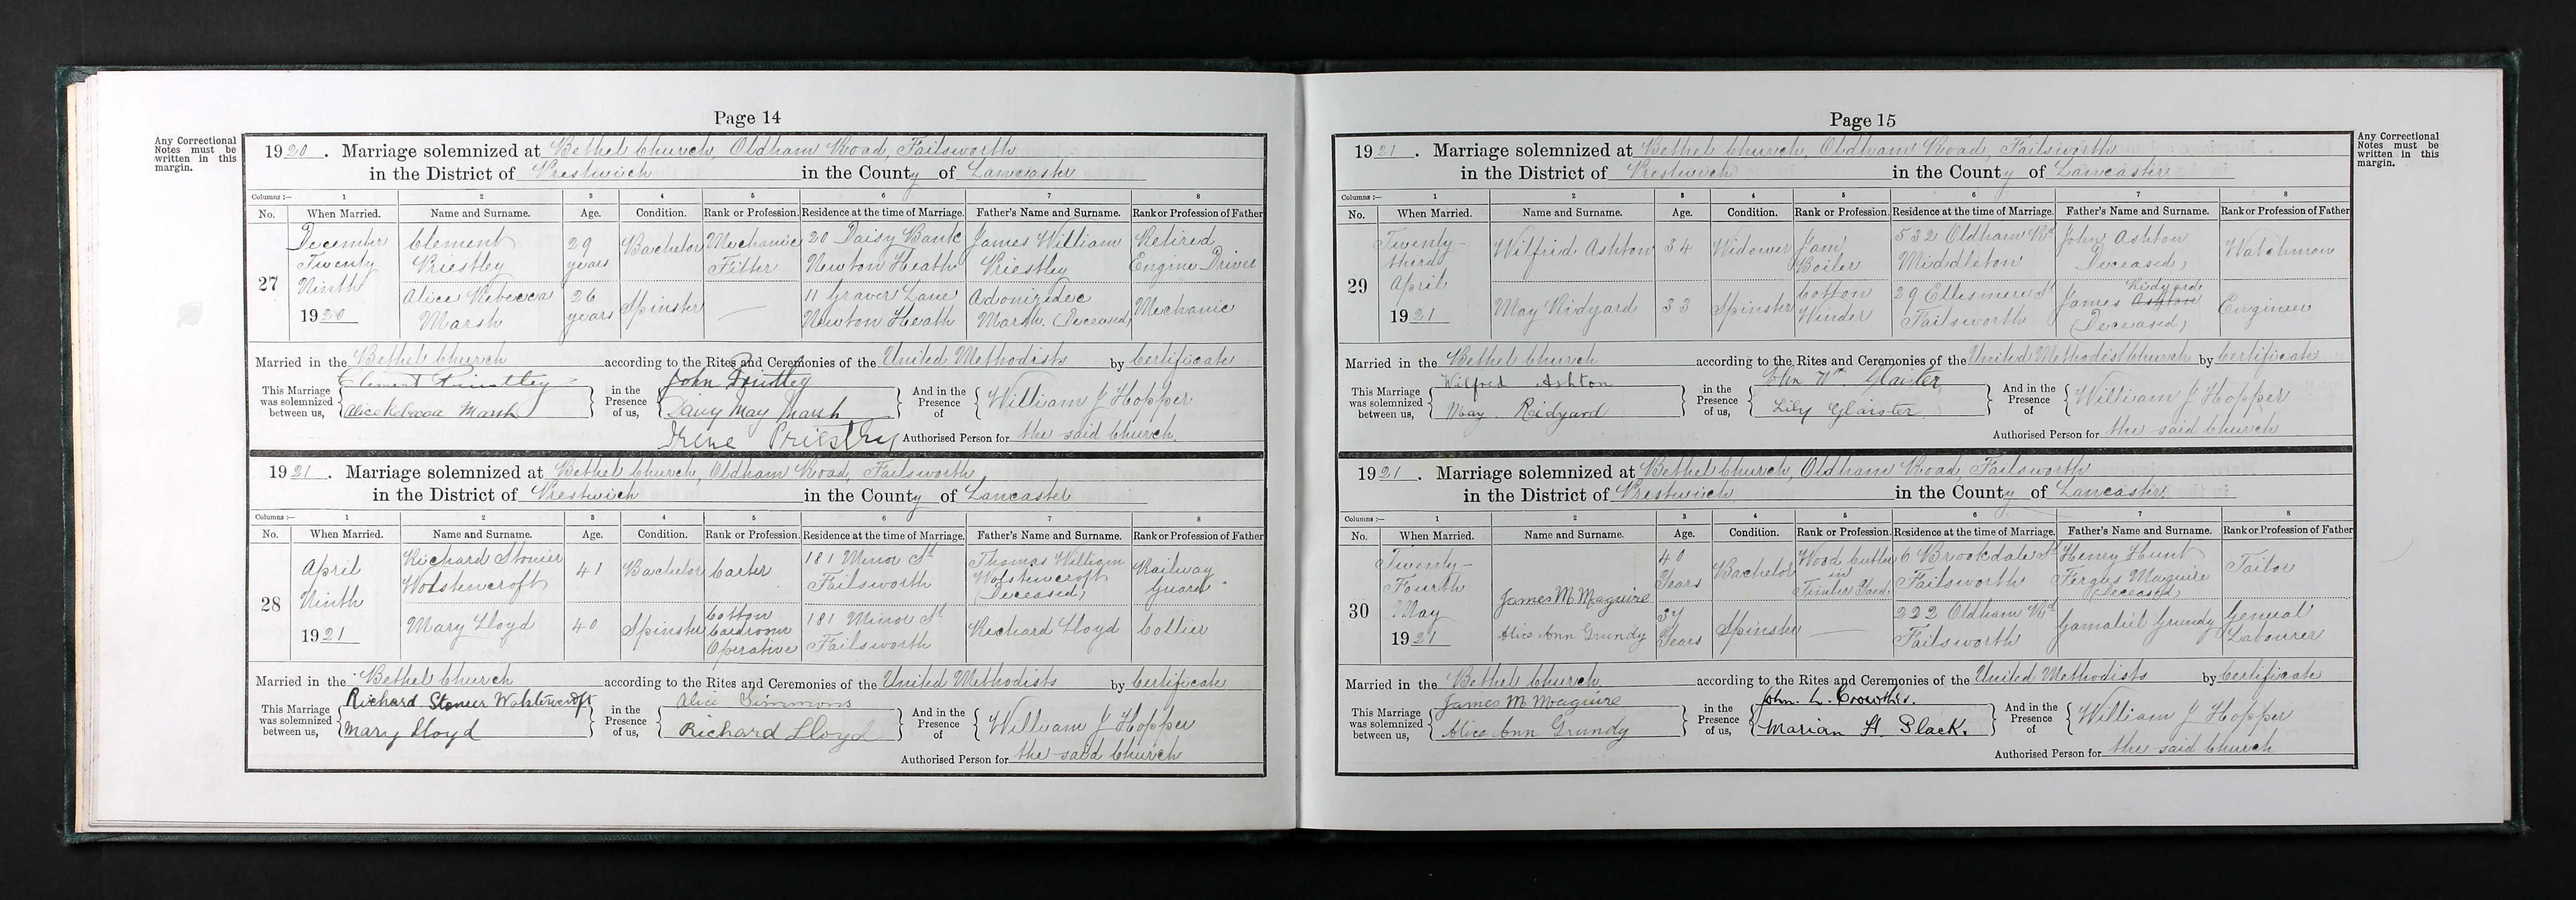 Page 14
Any Correctional
Notes must be
written in this
margin.
1920. Marriage solemnized at Bethel Church, Oldham Road, Failsworth
in the District of Prestwich in the County of Lancaster
Columns :— 1 2 3 4 5 6 7 8
No. When Married. Name and Surname. Age. Condition. Rank or Profession. Residence at the time of Marriage. Father's Name and Surname. Rank or Profession of Father
27
December
Twenty
Ninth
1920
Clement
Priestley
29
years
Bachelor
Mechanic
Fitter
20 Daisy Bank
Newton Heath
James William
Priestley
Retired
Engine Driver
Alice Rebecca
Marsh
26
years
Spinster
—
11 Graver Lane
Newton Heath
Adonizedec
Marsh. (Deceased)
Mechanic
Married in the Bethel Church according to the Rites and Ceremonies of the United Methodists by Certificate
This Marriage
was solemnized
between us,
Clement Priestley
Alice Rebecca Marsh
in the
Presence
of us,
John Priestley
Daisy May Marsh
Irene Priestley
And in the
Presence
of
William J Hopper
Authorised Person for the said Church.
1921. Marriage solemnized at Bethel Church, Oldham Road, Failsworth
in the District of Prestwich in the County of Lancaster
Columns :— 1 2 3 4 5 6 7 8
No. When Married. Name and Surname. Age. Condition. Rank or Profession. Residence at the time of Marriage. Father's Name and Surname. Rank or Profession of Father
28
April
Ninth
1921
Richard Stonier
Wolstencroft
41
Bachelor
Carter
181 Minor St
Failsworth
Thomas William
Wolstencroft
(Deceased)
Railway
Guard
Mary Lloyd
40
Spinster
Cotton
Cardroom
Operative
181 Minor St
Failsworth
Richard Lloyd
Collier
Married in the Bethel Church according to the Rites and Ceremonies of the United Methodists by Certificate
This Marriage
was solemnized
between us,
Richard Stonier Wolstencroft
Mary Lloyd
in the
Presence
of us,
Alice Simmons
Richard Lloyd
And in the
Presence
of
William J Hopper
Authorised Person for the said Church
Page 15
Any Correctional
Notes must be
written in this
margin.
1921. Marriage solemnized at Bethel Church, Oldham Road, Failsworth
in the District of Prestwich in the County of Lancaster
Columns :— 1 2 3 4 5 6 7 8
No. When Married. Name and Surname. Age. Condition. Rank or Profession. Residence at the time of Marriage. Father's Name and Surname. Rank or Profession of Father
29
Twenty-
third
April
1921
Wilfrid Ashton
34
Widower
Jam
Boiler
532 Oldham Rd
Middleton
John Ashton
(Deceased)
Watchman
May Ridyard
33
Spinster
Cotton
Winder
29 Ellesmere St
Failsworth
Ridyard
James Ashton
(Deceased)
Engineer
Married in the Bethel Church according to the Rites and Ceremonies of the United Methodist Church by Certificate
This Marriage
was solemnized
between us,
Wilfred Ashton
May Ridyard
in the
Presence
of us,
John Wm Glaister
Lily Glaister
And in the
Presence
of
William J Hopper
Authorised Person for the said Church
1921. Marriage solemnized at Bethel Church, Oldham Road, Failsworth
in the District of Prestwich in the County of Lancaster
Columns :— 1 2 3 4 5 6 7 8
No. When Married. Name and Surname. Age. Condition. Rank or Profession. Residence at the time of Marriage. Father's Name and Surname. Rank or Profession of Father
30
Twenty-
Fourth
May
1921
James M Maguire
40
Years
Bachelor
Wood Cutter
in
Timber Yard
6 Brookdale St
Failsworth
Henry Hunt
Fergus Maguire
(Deceased)
Tailor
Alice Ann Grundy
37
Years
Spinster
—
222 Oldham Rd
Failsworth
Gamaliel Grundy
General
Labourer
Married in the Bethel Church according to the Rites and Ceremonies of the United Methodists by Certificate
This Marriage
was solemnized
between us,
James M Maguire
Alice Ann Grundy
in the
Presence
of us,
John. L. Crowther.
Marian H. Slack.
And in the
Presence
of
William J Hopper
Authorised Person for the said Church